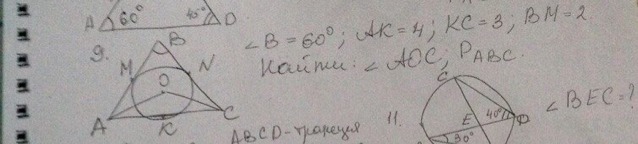 A 60° 40° D
9.
B
∠B = 60°; AK = 4; KC = 3; BM = 2
Найти: ∠ AOC; P ABC.
M N
O
A K C
ABCD - трапеция
11.
C
E 40° D
30°
∠ BEC = ?